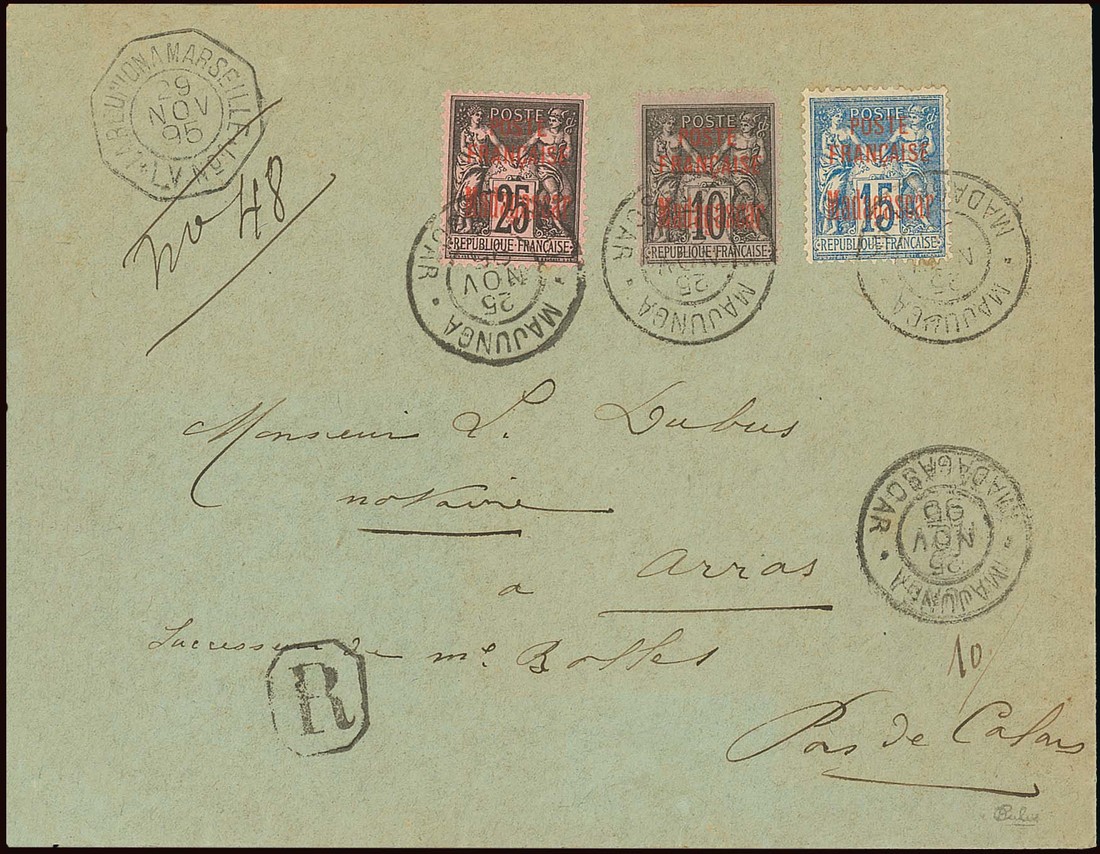 LA REUNION A MARSEILLE
29
NOV
95
No 48
POSTE
POSTE
FRANÇAISE
Madagascar
25
REPUBLIQUE FRANÇAISE
POSTE
POSTE
FRANÇAISE
Madagascar
10
REPUBLIQUE FRANÇAISE
POSTE
POSTE
FRANÇAISE
Madagascar
15
REPUBLIQUE FRANÇAISE
MAJUNGA
25
NOV
MAJUNGA
25
NOV
MAJUNGA
25
Monsieur L. Dubus
notaire
a Arras
Successeur de Me Rolles
Pas de Calais
MAJUNGA * MADAGASCAR
25
NOV
95
R
10